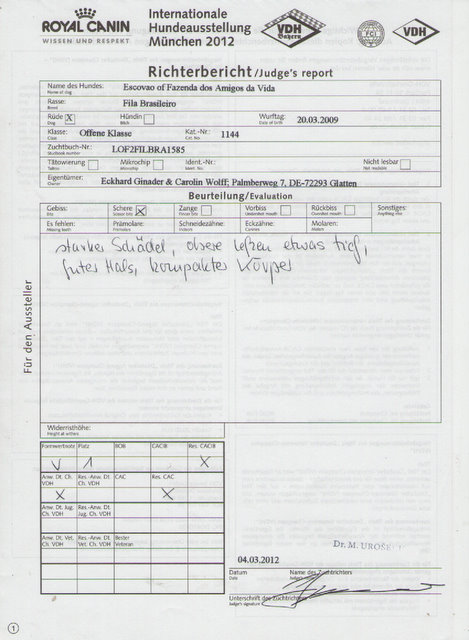 ROYAL CANIN
WISSEN UND RESPEKT
Internationale
Hundeausstellung
München 2012
VDH
Bayern
FCI
VDH
Richterbericht/Judge's report
Name des Hundes: Escovao of Fazenda dos Amigos da Vida
Name of dog
Rasse: Fila Brasileiro
Breed
Rüde X Hündin Wurftag: 20.03.2009
Dog Bitch Date of birth
Klasse: Offene Klasse Kat.-Nr.: 1144
Class Cat.-No.
Zuchtbuch-Nr.: LOF2FILBRA1585
Studbook number
Tätowierung Mikrochip Ident.-Nr.: Nicht lesbar
Tattoo Microchip Ident.-No. Not readable
Eigentümer: Eckhard Ginader & Carolin Wolff; Palmberweg 7, DE-72293 Glatten
Owner
Beurteilung/Evaluation
Gebiss: Schere X Zange Vorbiss Rückbiss Sonstiges:
Bite Scissor bite Pincer bite Undershot mouth Overshot mouth Anything else
Es fehlen: Prämolare: Schneidezähne: Eckzähne: Molaren:
Missing teeth Premolars Incisors Canines Molars
starker Schädel, obere Lefzen etwas tief,
guter Hals, kompakter Körper
Für den Aussteller
Widerristhöhe:
Height at withers
Formwertnote Platz BOB CACIB Res. CACIB
V 1 X
Anw. Dt. Ch. VDH Res.-Anw. Dt. Ch. VDH CAC Res. CAC
X X
Anw. Dt. Jug. Ch. VDH Res.-Anw. Dt. Jug. Ch. VDH
Anw. Dt. Vet. Ch. VDH Res.-Anw. Dt. Vet. Ch. VDH Bester Veteran
Dr. M. UROŠ
04.03.2012
Datum Name des Zuchtrichters
Date Judge's name
Unterschrift des Zuchtrichters
Judge's signature
1